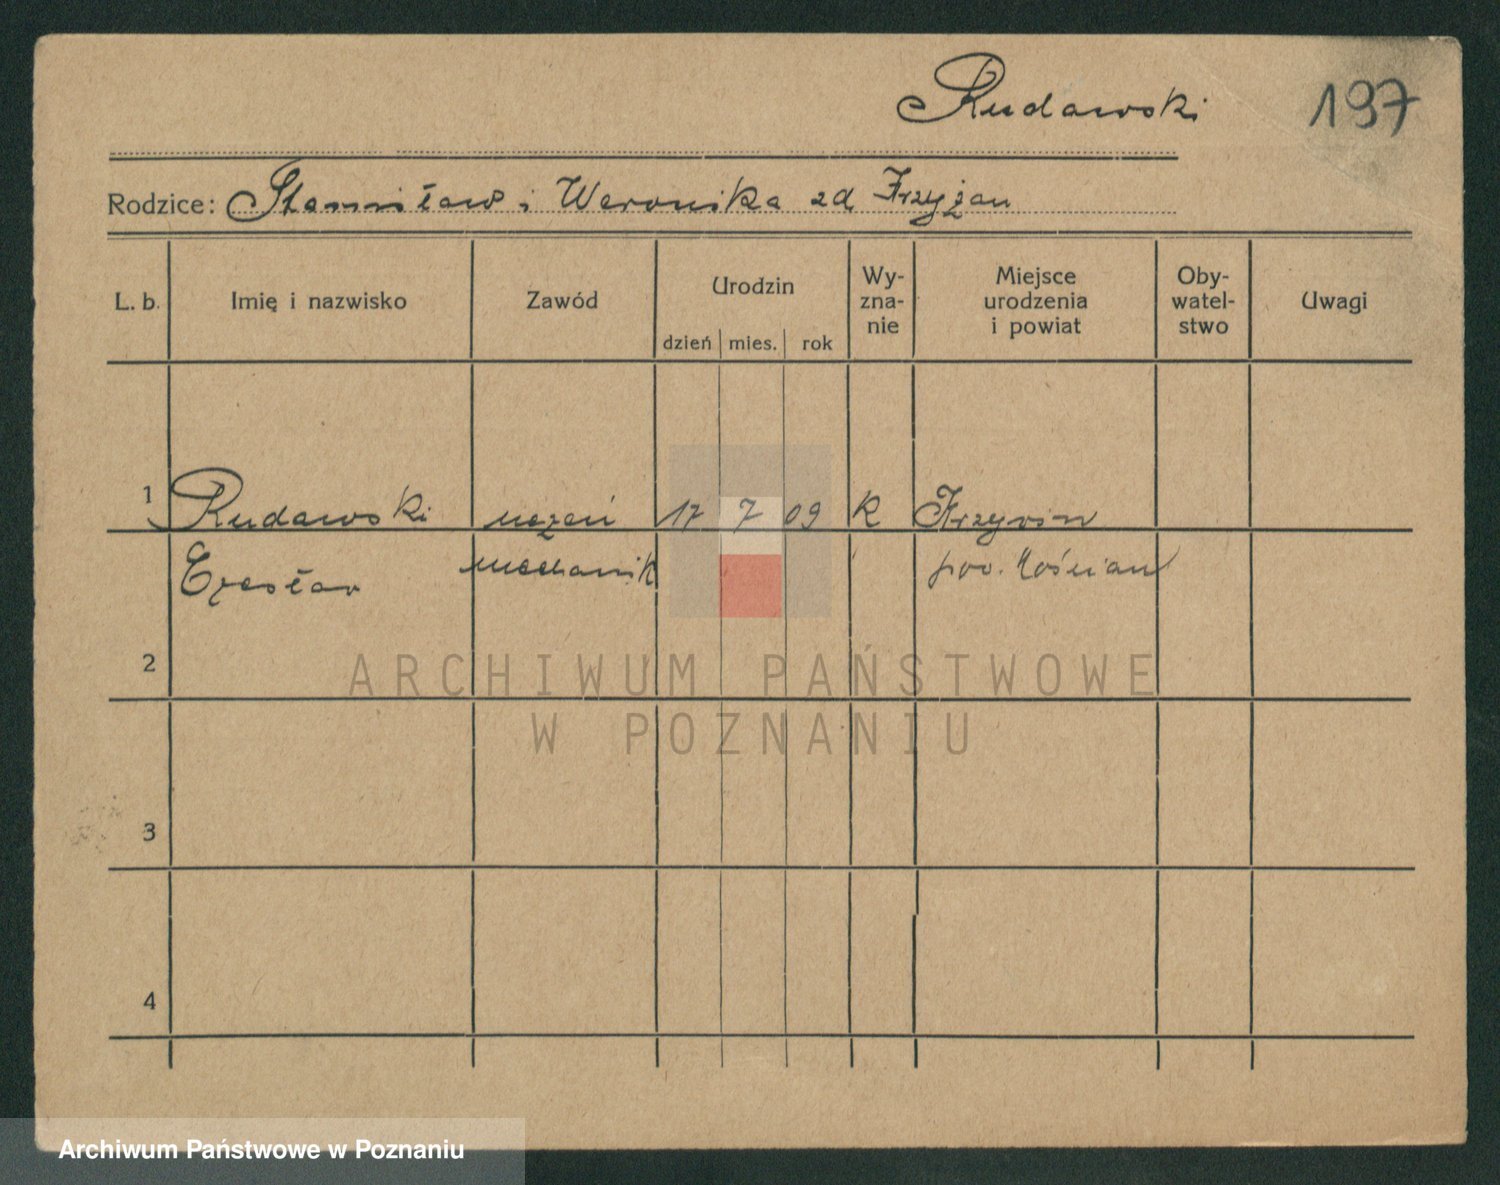 Rudawski
197
Rodzice: Stanisław i Weronika zd Krzyżan
L. b. Imię i nazwisko Zawód Urodzin dzień mies. rok Wy-zna-nie Miejsce urodzenia i powiat Oby-watel-stwo Uwagi
1 Rudawski uczeń 17 7 09 k Krzywin
Czesław mechanik pow. Kościan
2
ARCHIWUM PAŃSTWOWE
W POZNANIU
3
4
Archiwum Państwowe w Poznaniu